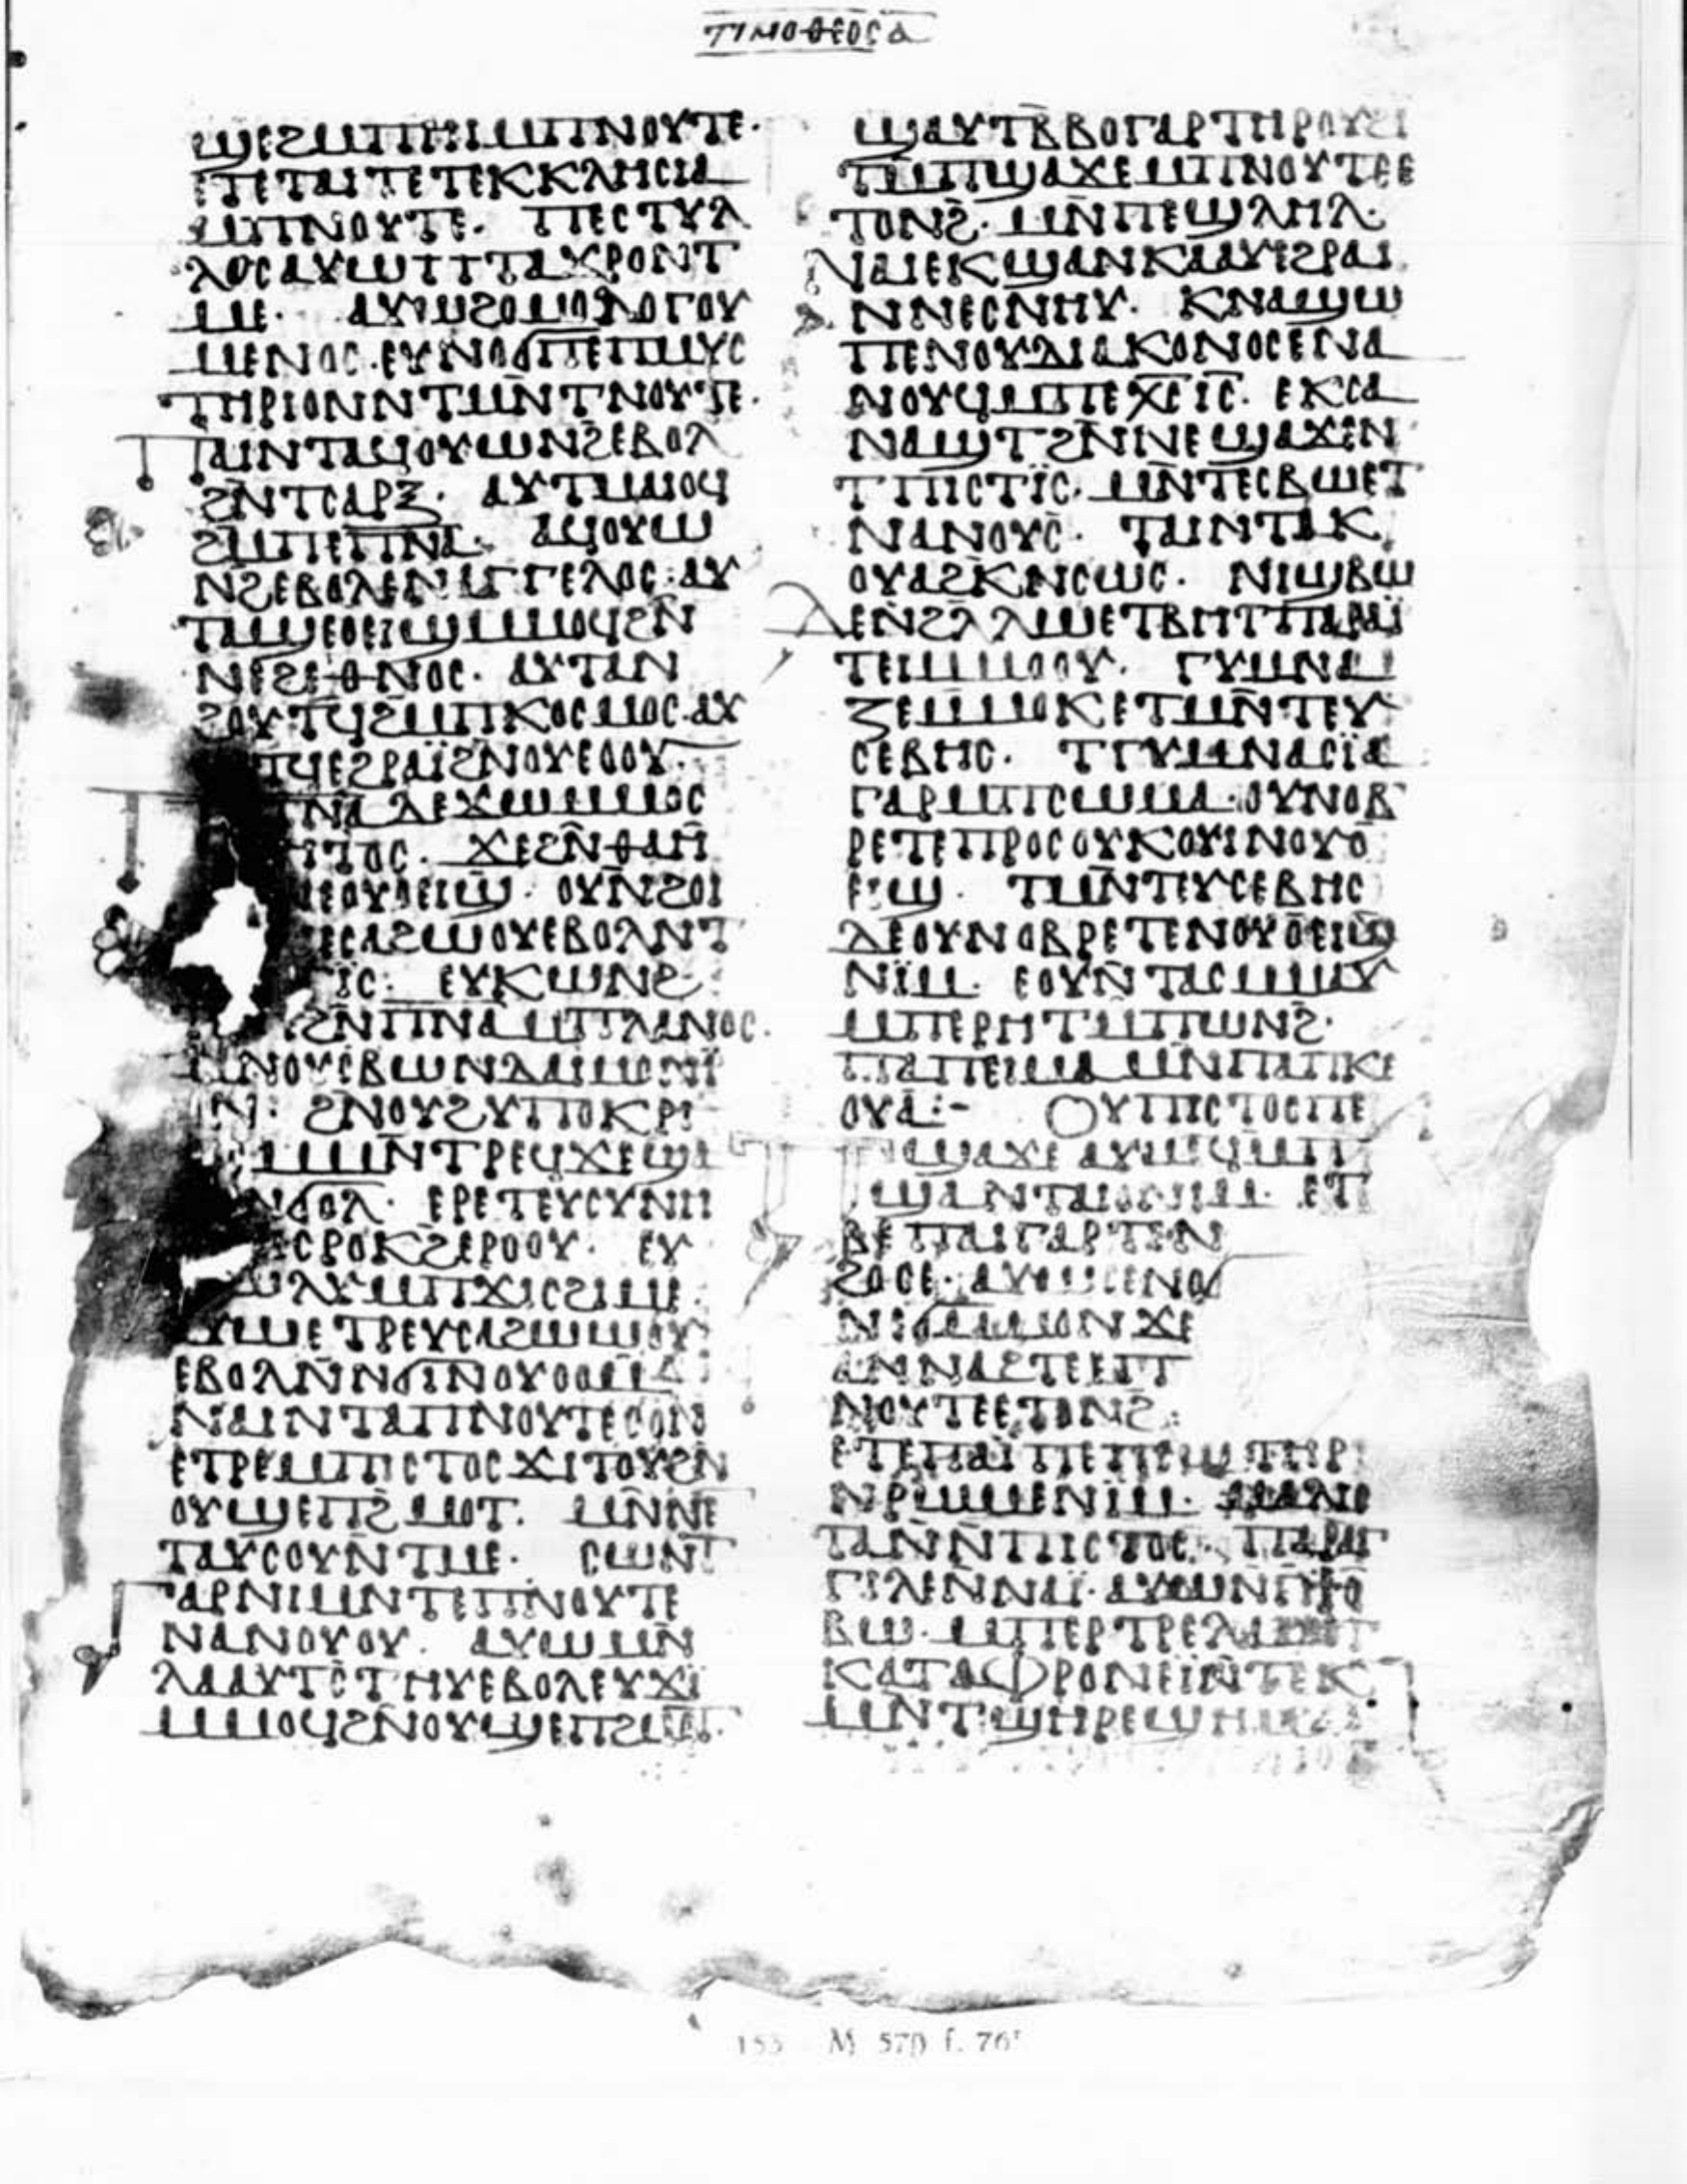 ⲧⲓⲙⲟⲑⲉⲟⲥ ⲁ
ϣⲉϩⲙⲡⲏⲓⲙⲡⲛⲟⲩⲧⲉ·
ⲉⲧⲉⲧⲁⲓⲧⲉⲧⲉⲕⲕⲗⲏⲥⲓⲁ
ⲙⲡⲛⲟⲩⲧⲉ· ⲡⲉⲥⲧⲩⲗ
ⲗⲟⲥⲁⲩⲱⲡⲧⲁϫⲣⲟⲛⲧ
ⲙⲉ· ⲁⲩⲱϩⲟⲙⲟⲗⲟⲅⲟⲩ
ⲙⲉⲛⲟⲥ·ⲟⲩⲛⲟϭⲡⲉⲡⲙⲩⲥ
ⲧⲏⲣⲓⲟⲛⲛⲧⲙⲛⲧⲛⲟⲩⲧⲉ·
ⲡⲁⲓⲛⲧⲁϥⲟⲩⲱⲛϩⲉⲃⲟⲗ
ϩⲛⲧⲥⲁⲣⲝ· ⲁⲩⲧⲙⲁⲓⲟϥ
ϩⲙⲡⲉⲡⲛⲁ· ⲁϥⲟⲩⲱ
ⲛϩⲉⲃⲟⲗⲉⲛⲁⲅⲅⲉⲗⲟⲥ·ⲁⲩ
ⲧⲁϣⲉⲟⲉⲓϣⲙⲙⲟϥϩⲛ
ⲛϩⲉⲑⲛⲟⲥ· ⲁⲩⲧⲁⲛ
ϩⲟⲩⲧϥϩⲙⲡⲕⲟⲥⲙⲟⲥ·ⲁⲩ
ⲧϥⲉϩⲣⲁⲓ̈ϩⲛⲟⲩⲉⲟⲟⲩ·
ⲡⲛⲁⲇⲉϫⲱⲙⲙⲟⲥ
ⲏⲧⲟⲥ· ϫⲉϩⲛⲑⲁⲏ
ⲛⲉⲟⲩⲟⲉⲓϣ· ⲟⲩⲛϩⲟⲓ
ⲛⲉⲥⲁϩⲱⲟⲩⲉⲃⲟⲗⲛⲧ
ⲧⲓ̈ⲥ· ⲉⲩⲕⲱⲛⲥ
ϩⲛⲡⲛⲁⲙⲡⲗⲁⲛⲟⲥ·
ⲙⲛⲟⲩⲥⲃⲱⲛⲇⲁⲓⲙⲟⲛⲓ
ⲛ· ϩⲛⲟⲩϩⲩⲡⲟⲕⲣⲓ
ⲙⲙⲛⲧⲣⲉϥϫⲉϣⲁ
ⲛϭⲟⲗ· ⲉⲣⲉⲧⲉⲩⲥⲩⲛⲏ
ⲥⲣⲟⲕϩⲉⲣⲟⲟⲩ· ⲉⲩ
ⲱⲗⲩⲙⲡϫⲓⲥϩⲓⲙⲉ·
ⲁⲩⲱⲉⲧⲣⲉⲩⲥⲁϩⲱⲱⲟⲩ
ⲉⲃⲟⲗⲛⲛϭⲓⲛⲟⲩⲟⲟⲙ
ⲛⲁⲓⲛⲧⲁⲡⲛⲟⲩⲧⲉⲥⲟⲛ
ⲉⲧⲣⲉⲙⲡⲓⲥⲧⲟⲥϫⲓⲧⲟⲩϩⲛ
ⲟⲩϣⲉⲡϩⲙⲟⲧ· ⲙⲛⲛⲉ
ⲧⲁⲩⲥⲟⲩⲛⲧⲙⲉ· ⲥⲱⲛⲧ
ⲅⲁⲣⲛⲓⲙⲛⲧⲉⲡⲛⲟⲩⲧⲉ
ⲛⲁⲛⲟⲩⲟⲩ· ⲁⲩⲱⲙⲛ
ⲗⲁⲁⲩⲧⲥⲧⲏⲩⲉⲃⲟⲗⲉⲩϫⲓ
ⲙⲙⲟϥϩⲛⲟⲩϣⲉⲡϩⲙⲟⲧ·
ϣⲁⲩⲧⲃⲃⲟⲅⲁⲣⲧⲏⲣⲟⲩϩⲓ
ⲧⲙⲡϣⲁϫⲉⲙⲡⲛⲟⲩⲧⲉⲉ
ⲧⲟⲛϩ· ⲙⲛⲡⲉϣⲗⲏⲗ·
ⲛⲁⲓⲉⲕϣⲁⲛⲕⲁⲁⲩⲉϩⲣⲁⲓ
ⲛⲛⲉⲥⲛⲏⲩ· ⲕⲛⲁϣⲱ
ⲡⲉⲛⲟⲩⲇⲓⲁⲕⲟⲛⲟⲥⲉⲛⲁ
ⲛⲟⲩϥⲙⲡⲉⲭⲥⲓⲥ· ⲉⲕⲥⲁ
ⲛⲁϣⲧϩⲛⲛⲉϣⲁϫⲉⲛ
ⲧⲡⲓⲥⲧⲓ̈ⲥ· ⲙⲛⲧⲉⲥⲃⲱⲉⲧ
ⲛⲁⲛⲟⲩⲥ· ⲧⲁⲓⲛⲧⲁⲕ
ⲟⲩⲁϩⲕⲛⲥⲱⲥ· ⲛⲓϣⲃⲱ
ⲇⲉⲛϩⲗⲗⲱⲉⲧⲃⲏⲧⲡⲁⲣⲁⲓ̈
ⲧⲉⲓⲙⲙⲟⲟⲩ· ⲅⲩⲙⲛⲁ
ⲍⲉⲙⲙⲟⲕⲉⲧⲙⲛⲧⲉⲩ
ⲥⲉⲃⲏⲥ· ⲧⲅⲩⲙⲛⲁⲥⲓ̈ⲁ
ⲅⲁⲣⲙⲡⲥⲱⲙⲁ·ⲟⲩⲛⲟⲃ
ⲣⲉⲧⲉⲡⲣⲟⲥⲟⲩⲕⲟⲩⲓⲛⲟⲩⲟ
ⲉⲓϣ· ⲧⲙⲛⲧⲉⲩⲥⲉⲃⲏⲥ
ⲇⲉⲟⲩⲛⲟⲃⲣⲉⲧⲉⲛⲟⲩⲟⲉⲓϣ
ⲛⲓ̈ⲙ· ⲉⲟⲩⲛⲧⲁⲥⲙⲙⲁⲩ
ⲙⲡⲉⲣⲏⲧⲙⲡⲱⲛϩ·
ⲡⲁⲡⲉⲓⲙⲁⲙⲛⲡⲁⲡⲕⲉ
ⲟⲩⲁ:- ⲟⲩⲡⲓⲥⲧⲟⲥⲡⲉ
ⲡϣⲁϫⲉⲁⲩⲱϥⲙⲡ
ϣⲁⲛⲧⲁⲓⲟⲛⲓⲙ· ⲉⲧ
ⲃⲉⲡⲁⲓⲅⲁⲣⲧⲛ
ϩⲟⲥⲉ·ⲁⲩⲱⲥⲉⲛⲟϭ
ⲛⲉϭⲙⲙⲟⲛϫⲉ
ⲁⲛⲛⲁϩⲧⲉⲉⲡ
ⲛⲟⲩⲧⲉⲉⲧⲟⲛϩ·
ⲉⲧⲉⲡⲁⲓ̈ⲡⲉⲡⲥⲱⲧⲏⲣ
ⲛⲣⲱⲙⲉⲛⲓⲙ· ⲙⲁⲗⲓⲥ
ⲧⲁⲛⲛⲡⲓⲥⲧⲟⲥ· ⲡⲁⲣⲁⲅ
ⲅⲓⲗⲉⲛⲛⲁⲓ̈·ⲁⲩⲱⲛⲅϯⲥ
ⲃⲱ·ⲙⲡⲉⲣⲧⲣⲉⲗⲁⲁⲩ
ⲕⲁⲧⲁⲫⲣⲟⲛⲉⲓ̈ⲛⲧⲉⲕ
ⲙⲛⲧϣⲏⲣⲉϣⲏⲙ
153 M 570 f. 76r